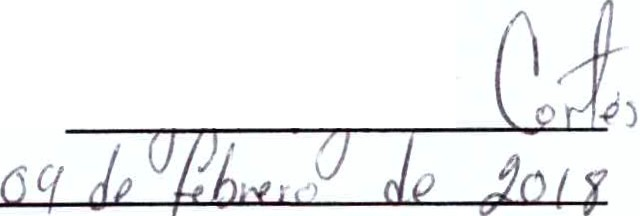 Cortés
09 de febrero de 2018